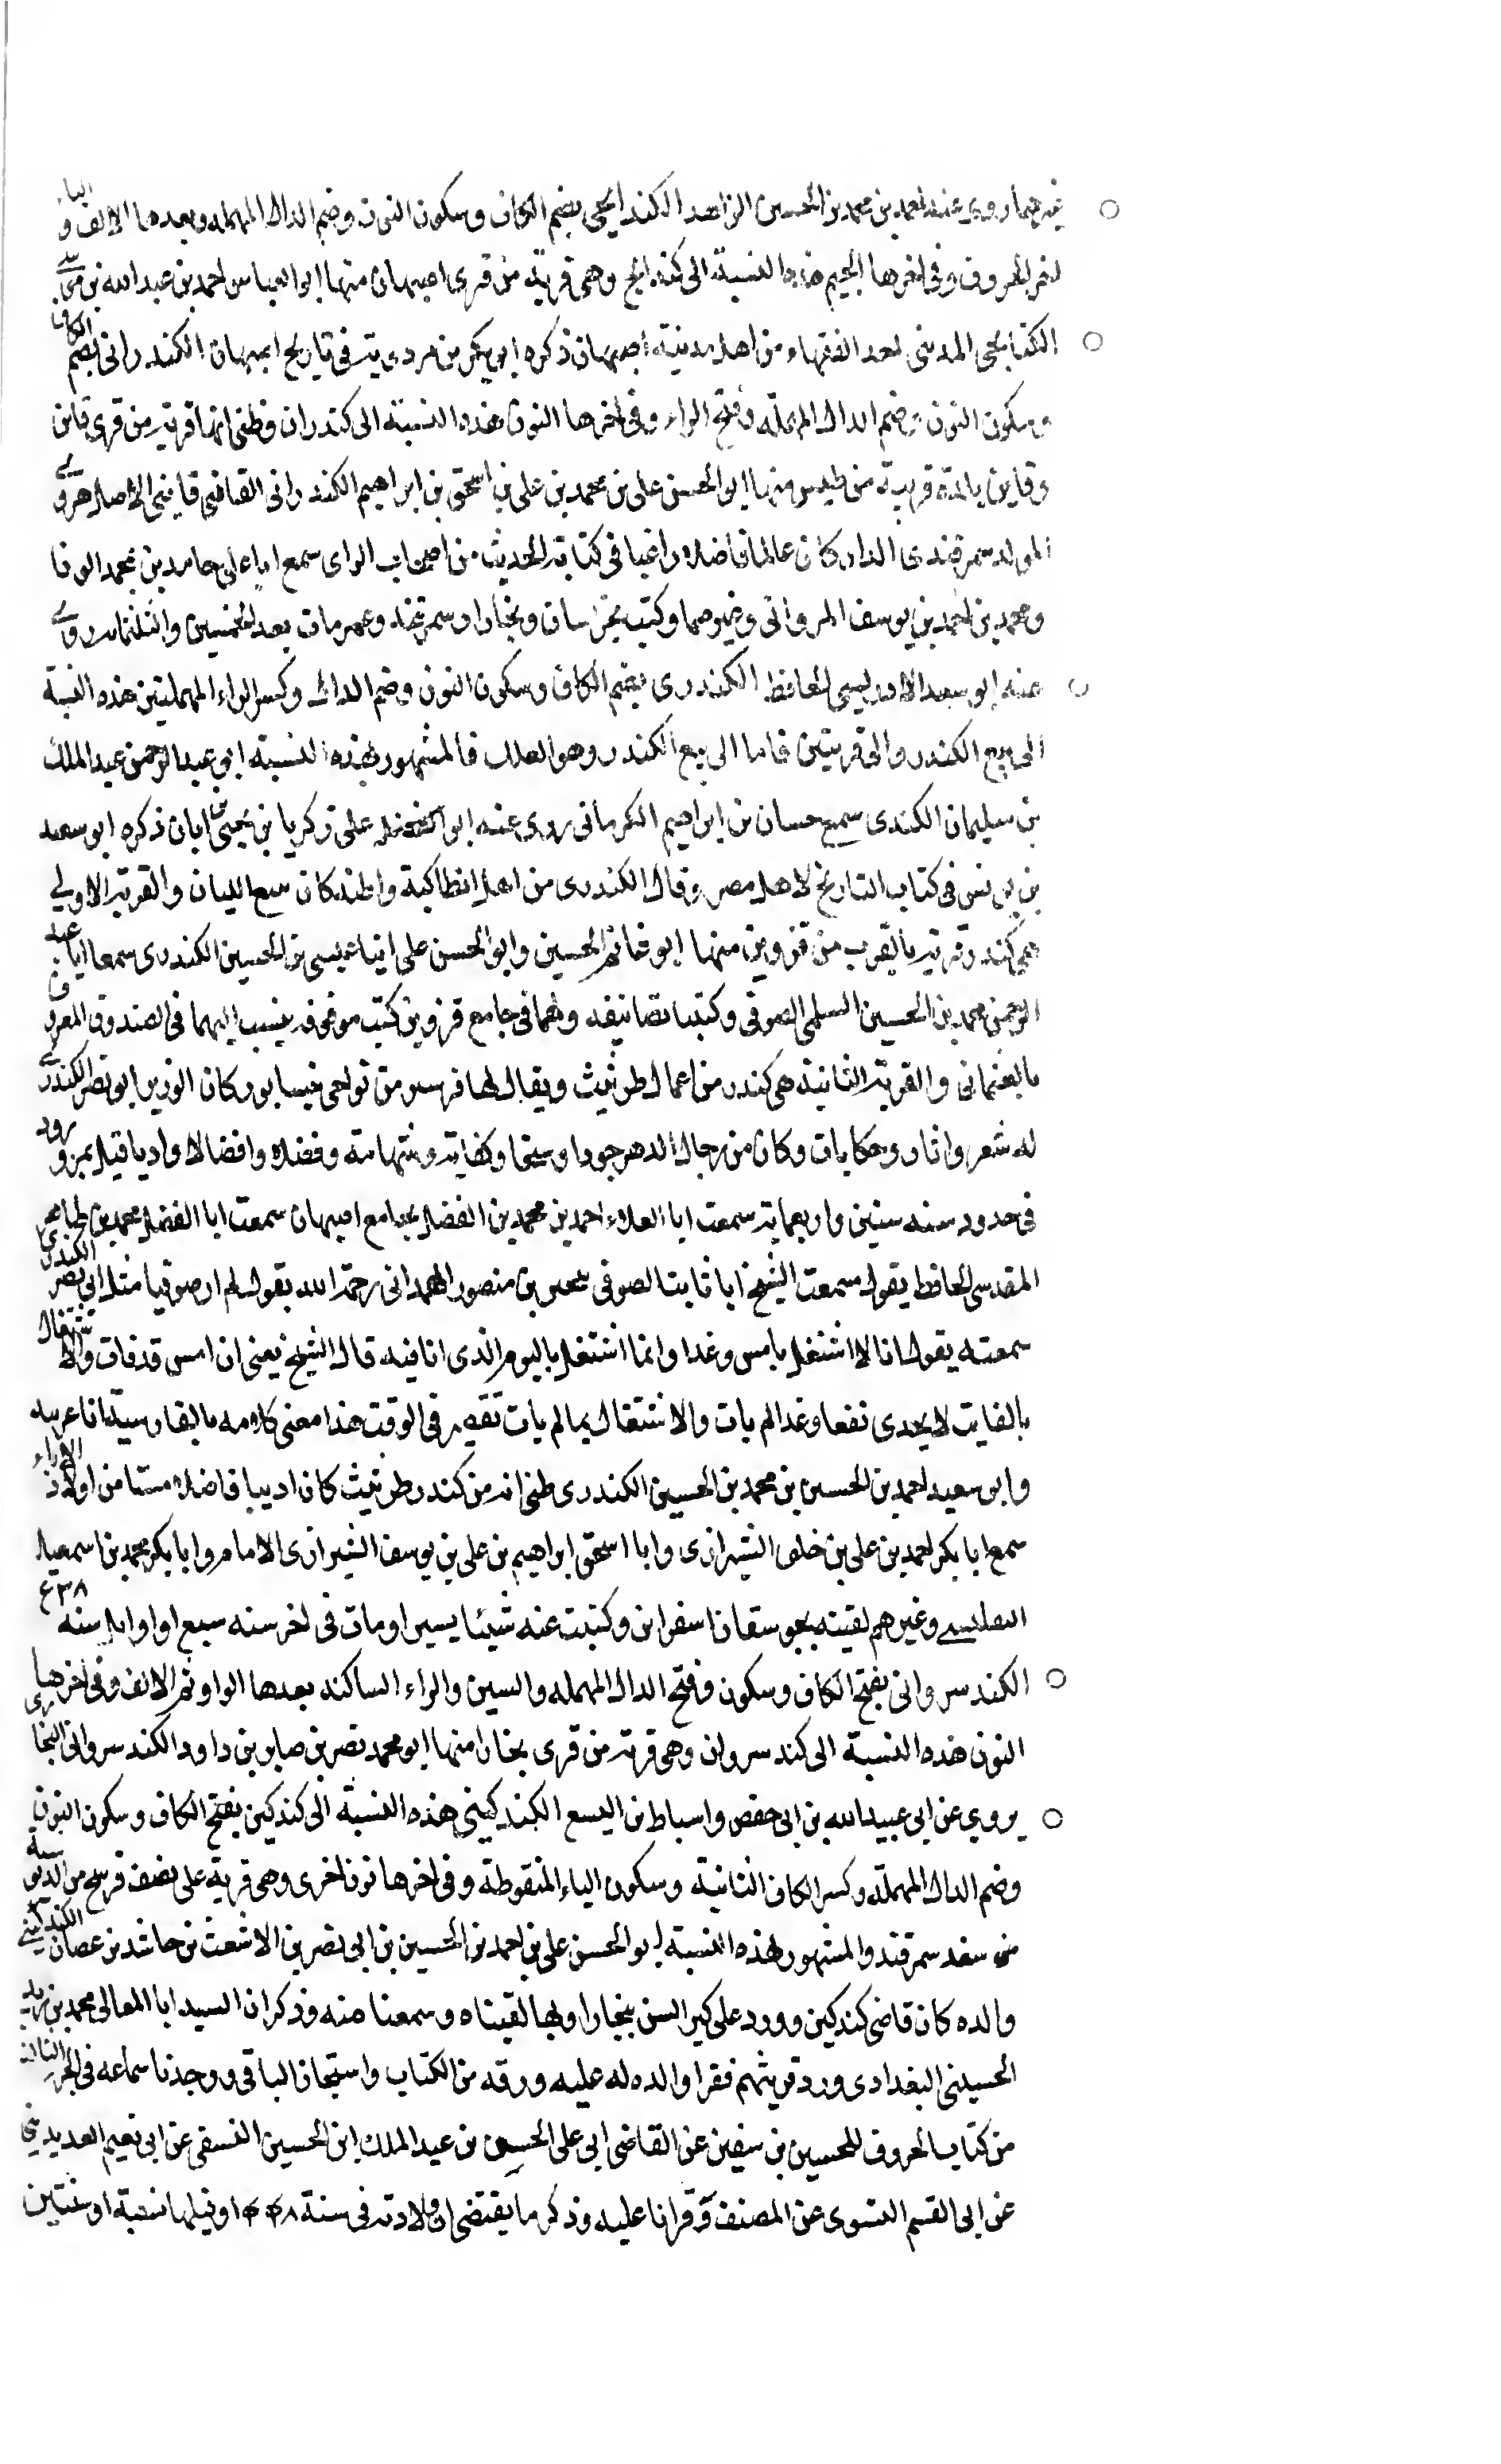 غيرهما روى عنه احمد بن محمد بن الحسين الزاهد الكندايجى بضم الكاف وسكون النون وضم الدال المهمله وبعدها الالف و الياء
اخر الحروف وفى اخرها الجيم هذه النسبة الى كندايج وهى قرية من قرى اصبهان منها ابو العباس احمد بن عبد الله بن موسى
الكندايجى المدينى احد الفقهاء من اهل مدينة اصبهان ذكره ابو بكر بن مردويه فى تاريخ اصبهان الكندرانى بضم الكاف
وسكون النون وضم الدال المهملة وفتح الراء وفى اخرها النون هذه النسبة الى كندران وظنى انها قرية من قرى قاين
وقاين بلدة قريبة من طبس منها ابو الحسن على بن محمد بن على بن اسحق بن ابراهيم الكندرانى القاضى قاينى الاصل هروى
المولد سمرقندى الدار كان عالما فاضلا راغبا فى كتابة الحديث من اصحاب الراى سمع ابا على حامد بن محمد الرفا
ومحمد بن احمد بن يوسف المروانى وغيرهما وكتب بخراسان وبخارا وسمرقند وعمر مات بعد الخمسين والثلثمايه روى
عنه ابو سعد الادريسى الحافظ الكندرى بضم الكاف وسكون النون وضم الدال وكسر الراء المهملتين هذه النسبة
الى بيع الكندر والى قريتين فاما الى بيع الكندر وهو العلك فالمشهور بهذه النسبة ابو عبد الرحمن عبد الملك
بن سليمان الكندى سمع حسان بن ابراهيم الكرمانى روى عنه ابو الفضل على زكريا بن يحيى بن ابان ذكره ابو سعيد
بن يونس فى كتاب التاريخ لاهل مصر وقال الكندرى من اهل انطاكية واظنه كان يبيع اللبان والقرية الاولى
هى كندر قرية بالقرب من قزوين منها ابو غانم الحسين وابو الحسن على ابنا عيسى بن الحسين الكندرى سمعا ابا عبد
الرحمن محمد بن الحسين السلمى الصوفى وكتبا تصانيفه ولهما فى جامع قزوين كتب موقوفة ينسب اليهما فى الصندوق المعروف
بالعثمانى والقرية الثانية هى كندر من اعمال طريثيث ويقال لها من نواحى نيسابور كان الوزير ابو نصر الكندرى
له شعر واثار وحكايات وكان من رجال الدهر جودا وسخا وكفاية وشهامة وفضلا وافضالا وادبا قتل بمرو رود
فى حدود سنه ستين واربعماية سمعت ابا العلاء احمد بن محمد بن الفضل بجامع اصبهان سمعت ابا الفضل محمد بن طاهر
المقدسى الحافظ يقول سمعت الشيخ ابا ثابت الصوفى بنجير بن منصور الهمدانى رحمه الله يقول لم ار صوفيا مثل ابى نصر الكندرى
سمعته يقول انا لا اشتغل بامس وغدا وانما اشتغل باليوم الذى انا فيه قال الشيخ يعنى ان امس قد فات والاشتغال
بالفايت لا يجدى نفعا وغدا لم يات والاشتغال بما لم يات تقصير فى الوقت هذا معنى كلامه بالفارسية انا عربته
وابو سعيد احمد بن الحسين بن محمد بن الحسين الكندرى ظنى انه من كندر طريثيث كان اديبا فاضلا مسنا من اولاد الوزراء
سمع ابا بكر احمد بن على بن خلف الشيرازى وابا اسحق ابراهيم بن على بن يوسف الشيرازى الامام وابا بكر محمد بن اسمعيل
التفليسى وغيرهم لقيته بجوسقان اسفراين وكتبت عنه شيئا يسيرا ومات فى اخر سنه سبع او اوايل سنه ٤٣٨
الكندسروانى بفتح الكاف وسكون وفتح الدال المهمله والسين والراء الساكنه بعدها الواو ثم الالف وفى اخرها
النون هذه النسبة الى كندسروان وهى قرية من قرى بخارا منها ابو محمد نصر بن صابر بن داود الكندسروانى البخارى
يروى عن ابى عبيد الله بن ابى حفص واسباط بن اليسع الكندكينى هذه النسبة الى كندكين بفتح الكاف وسكون النون
وضم الدال المهملة وكسر الكاف الثانية وسكون الياء المنقوطة وفى اخرها نون اخرى وهى قرية على نصف فرسخ من الدبوسية
من سغد سمرقند والمشهور بهذه النسبة ابو الحسن على بن احمد بن الحسين بن ابى نصر بن الاشعث بن حاشد بن عصان الكندكينى
والده كان قاضى كندكين وورد على كبر السن بخارا وبها لقيناه وسمعنا منه وذكر ان السيد ابا المعالى محمد بن زيد
الحسينى البغدادى ورد قريتهم فقرا والده له عليه ورقه من الكتاب واستجاز الباقى ووجدنا سماعه فى الجزء الثالث
من كتاب الحروف للحسين بن سفين عن القاضى ابى على الحسين بن عبد الملك ابن الحسين النسفى عن ابى نعيم
عن ابى القسم النسوى عن المصنف وقرانا عليه وذكر ما يقتضى ان ولادته فى سنة ٤٤٨ او قبلها بسنة او سنتين